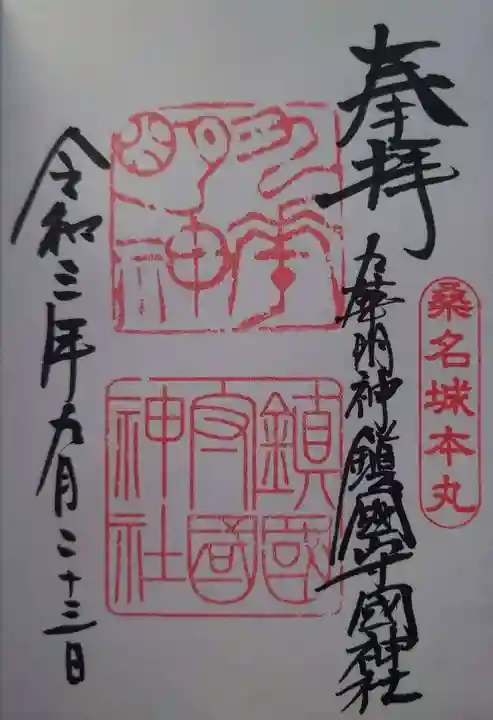 桑名城本丸
奉拝
九華明神鎮國守國神社
九華明神
鎮國守國神社
令和三年九月二十三日